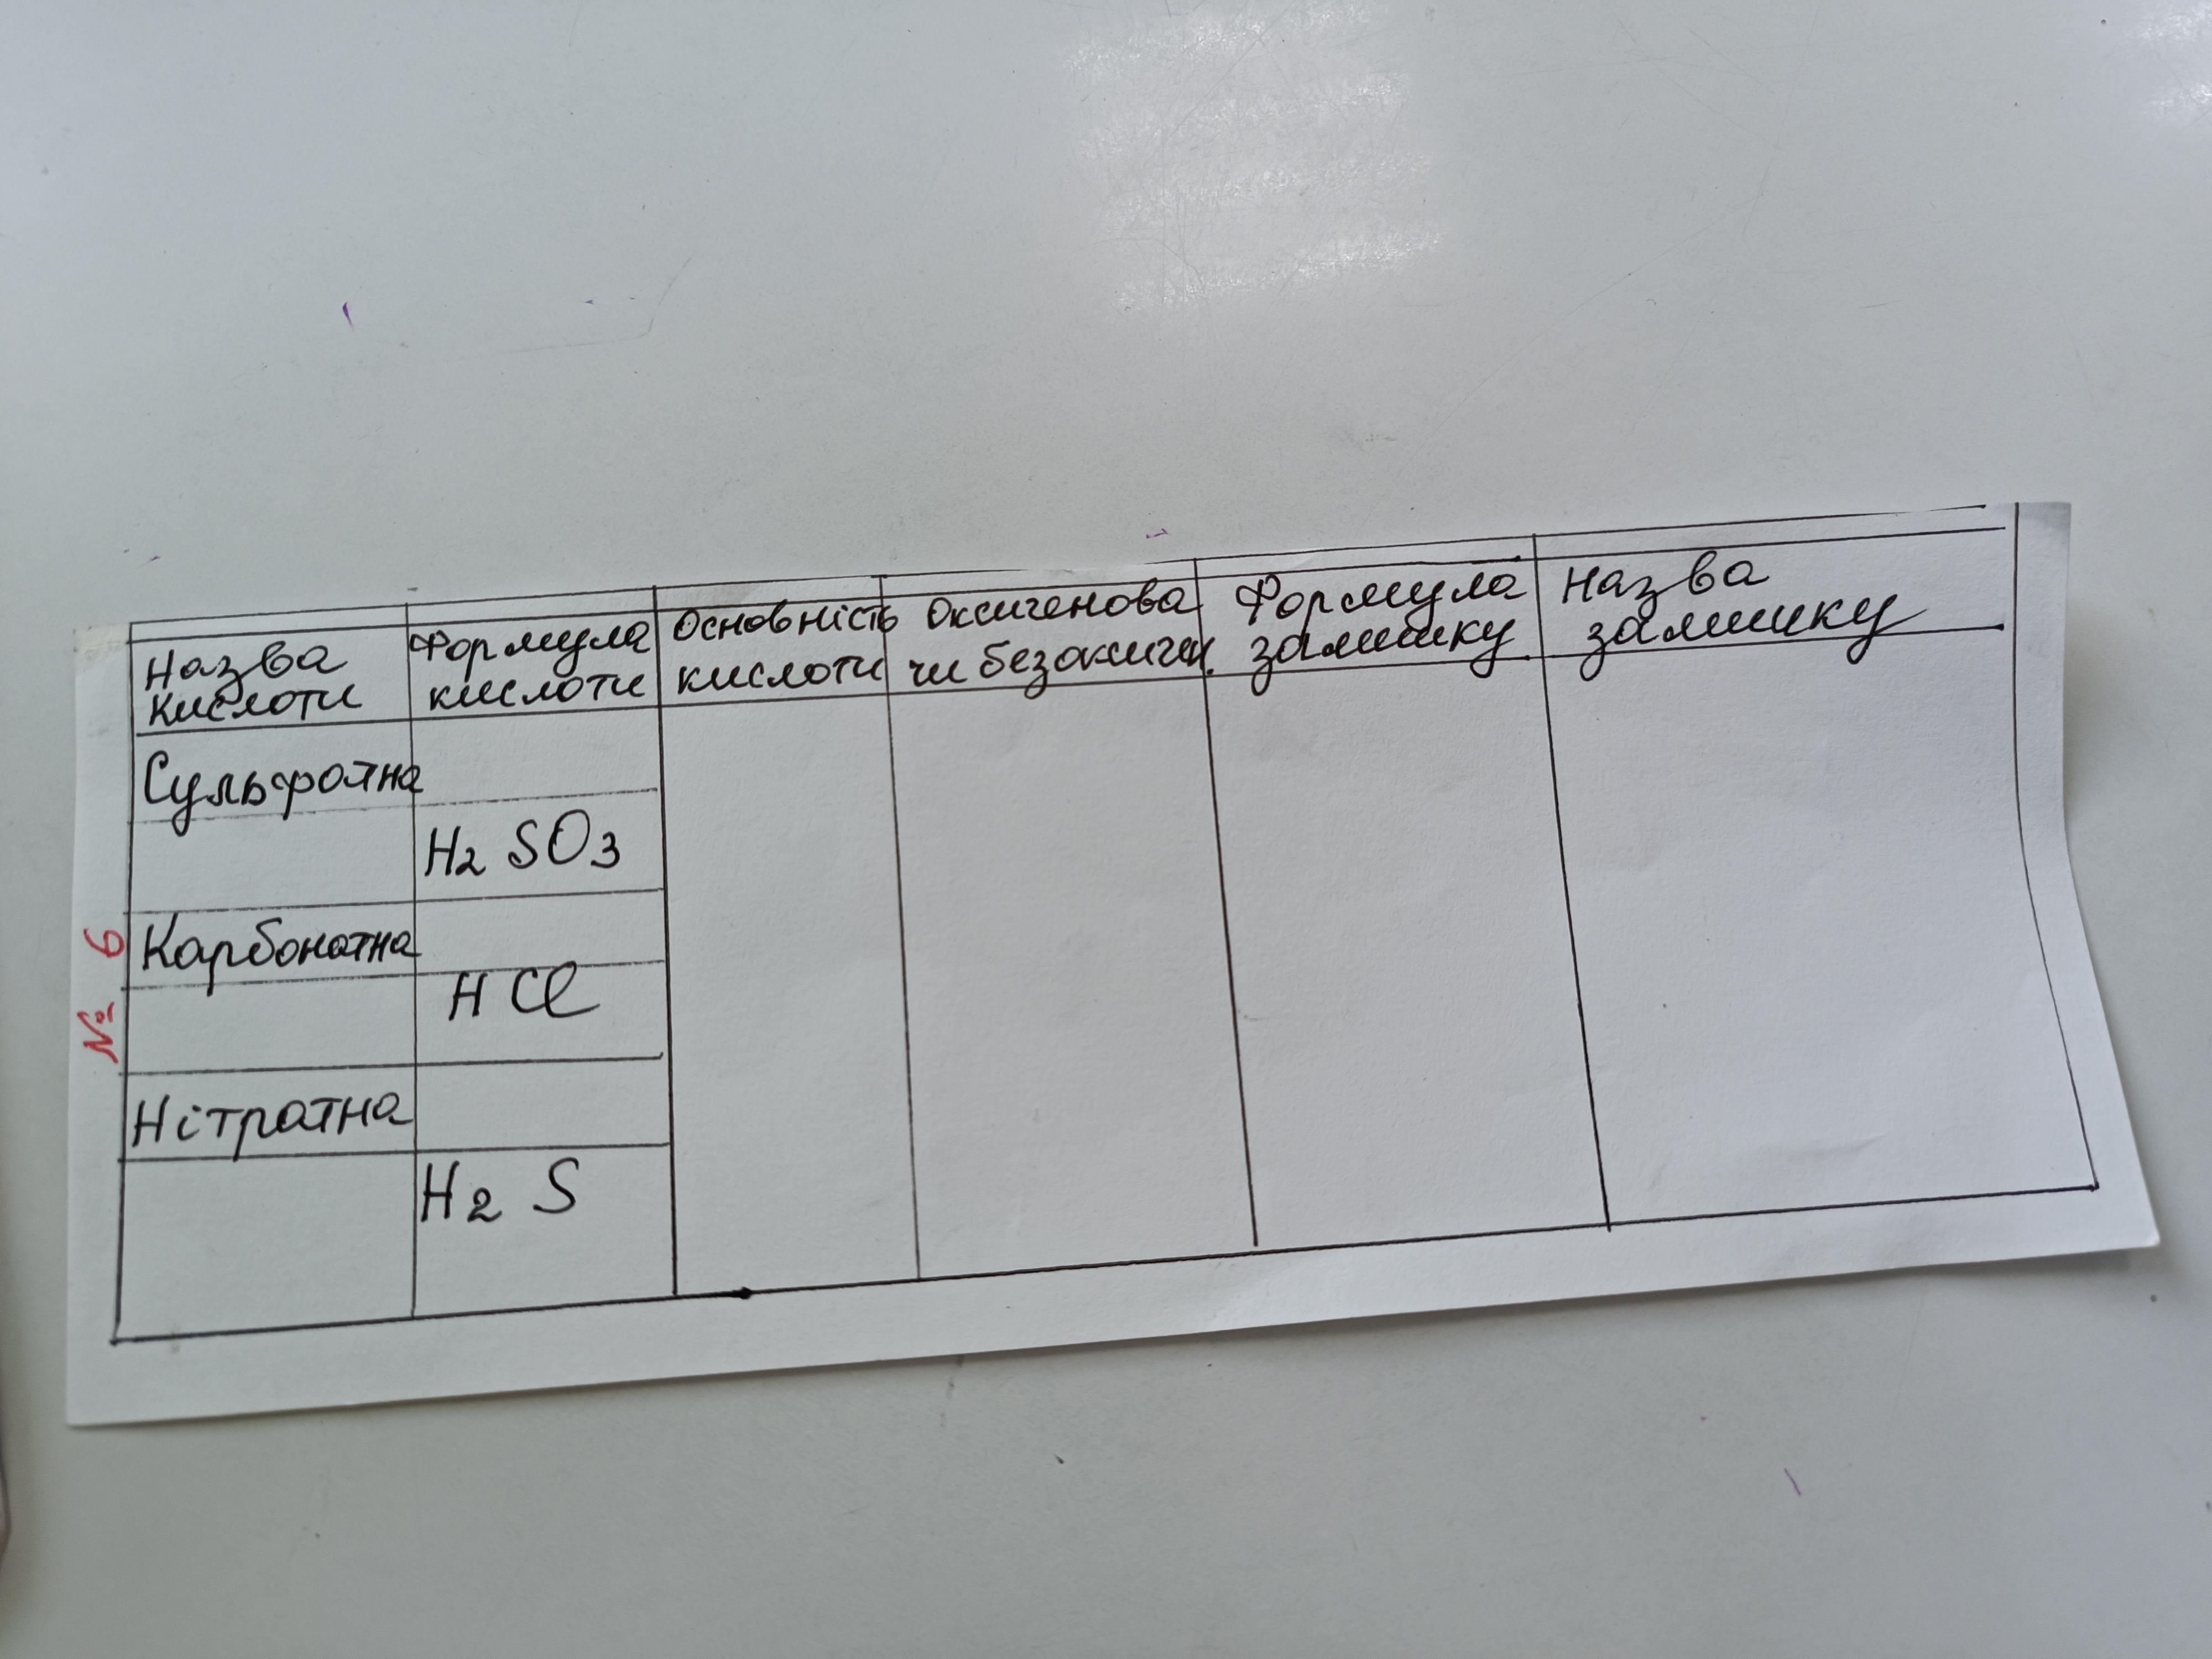 Назва кислоти
Формула кислоти
Основність кислоти
Оксигенова чи безоксиген.
Формула залишку
Назва залишку
Сульфатна
H2 SO3
Карбонатна
HCl
Нітратна
H2 S
№ 6